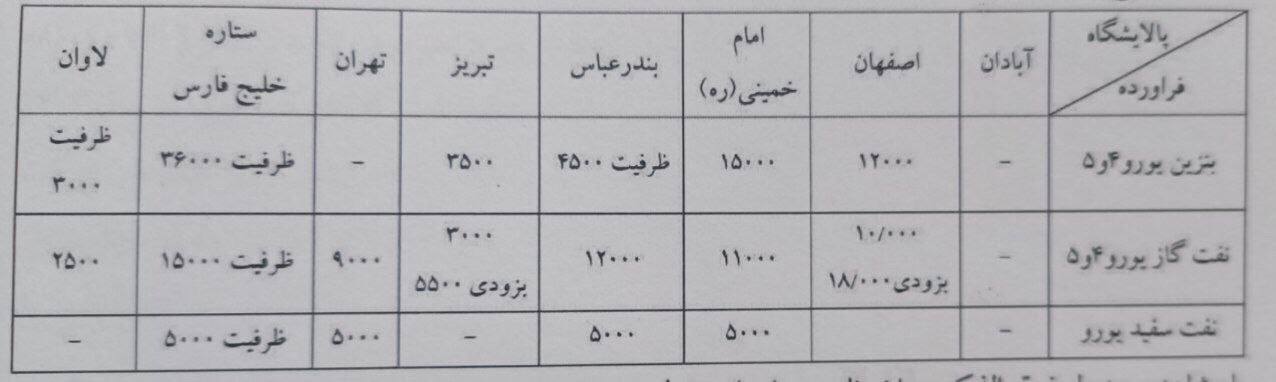 پالایشگاه
فراورده
آبادان
اصفهان
امام
خمینی(ره)
بندرعباس
تبریز
تهران
ستاره
خلیج فارس
لاوان
بنزین یورو۴و۵
–
۱۲۰۰۰
۱۵۰۰۰
ظرفیت ۴۵۰۰
۳۵۰۰
–
ظرفیت ۳۶۰۰۰
ظرفیت
۳۰۰۰
نفت گاز یورو۴و۵
–
۱۰/۰۰۰
بزودی۱۸/۰۰۰
۱۱۰۰۰
۱۲۰۰۰
۳۰۰۰
بزودی ۵۵۰۰
۹۰۰۰
ظرفیت ۱۵۰۰۰
۲۵۰۰
نفت سفید یورو
–
۵۰۰۰
۵۰۰۰
–
۵۰۰۰
ظرفیت ۵۰۰۰
–